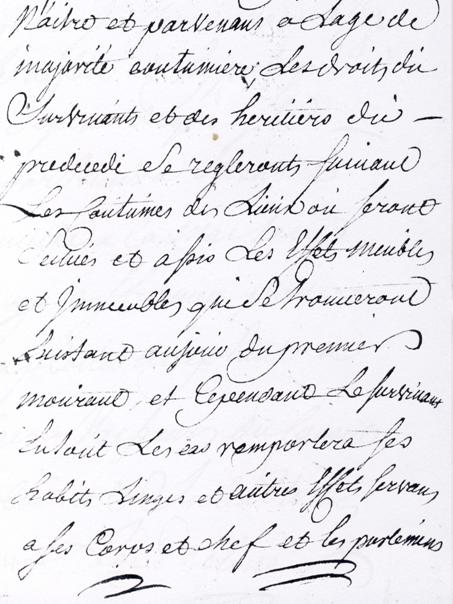 Naitre et parvenans a Lage de
majorité coutumiere; Les droits du
Survivants et des heritiers du –
predecedé Se regleronts suivant
Les Coutumes des Lieux ou seront
Scitués et assis Les Effets meubles
et Immeubles qui Se trouveront
Existant aujour du premier
mourant et Cependant Le survivant
En tout Les cas remportera ses
habits Linges et autres Effets servans
a ses Corps et chef et les parlemens